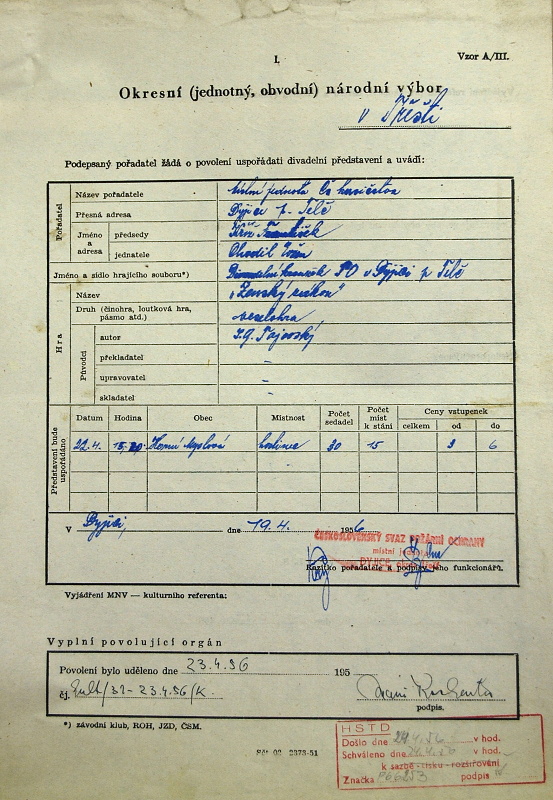 I.
Vzor A/III.
Okresní (jednotný, obvodní) národní výbor
v Třešti
Podepsaný pořadatel žádá o povolení uspořádati divadelní představení a uvádí:
Pořadatel
Název pořadatele místní jednota Čs hasičstva
Přesná adresa Dyjice p. Telč
Jméno a adresa předsedy Kříž František
jednatele Chvodil
Jméno a sídlo hrajícího souboru*) Divadelní kroužek PO v Dyjici p Telč
Hra
Název „Ženský zákon"
Druh (činohra, loutková hra, pásmo atd.) veselohra
Původci
autor J. G. Tajovský
překladatel -
upravovatel -
skladatel -
Představení bude uspořádáno
Datum Hodina Obec Místnost Počet sedadel Počet míst k stání Ceny vstupenek
celkem od do
22.4. Horní Myslová hostinec 30 15 3 6
V Dyjici, dne 19.4. 1956
ČESKOSLOVENSKÝ SVAZ POŽÁRNÍ OCHRANY
místní jednota
DYJICE
Razítko pořadatele a podpisy jeho funkcionářů.
Vyjádření MNV — kulturního referenta:
Vyplní povolující orgán
Povolení bylo uděleno dne 23.4.56 195
čj. Kult/31-23.4.56/K.
podpis.
*) závodní klub, ROH, JZD, ČSM.
HSTD
Došlo dne 24.4.56 v hod.
Schváleno dne 24.4.56 v hod.
k sazbě-tisku-rozšiřování
Značka podpis
Sčt 02 2373-51